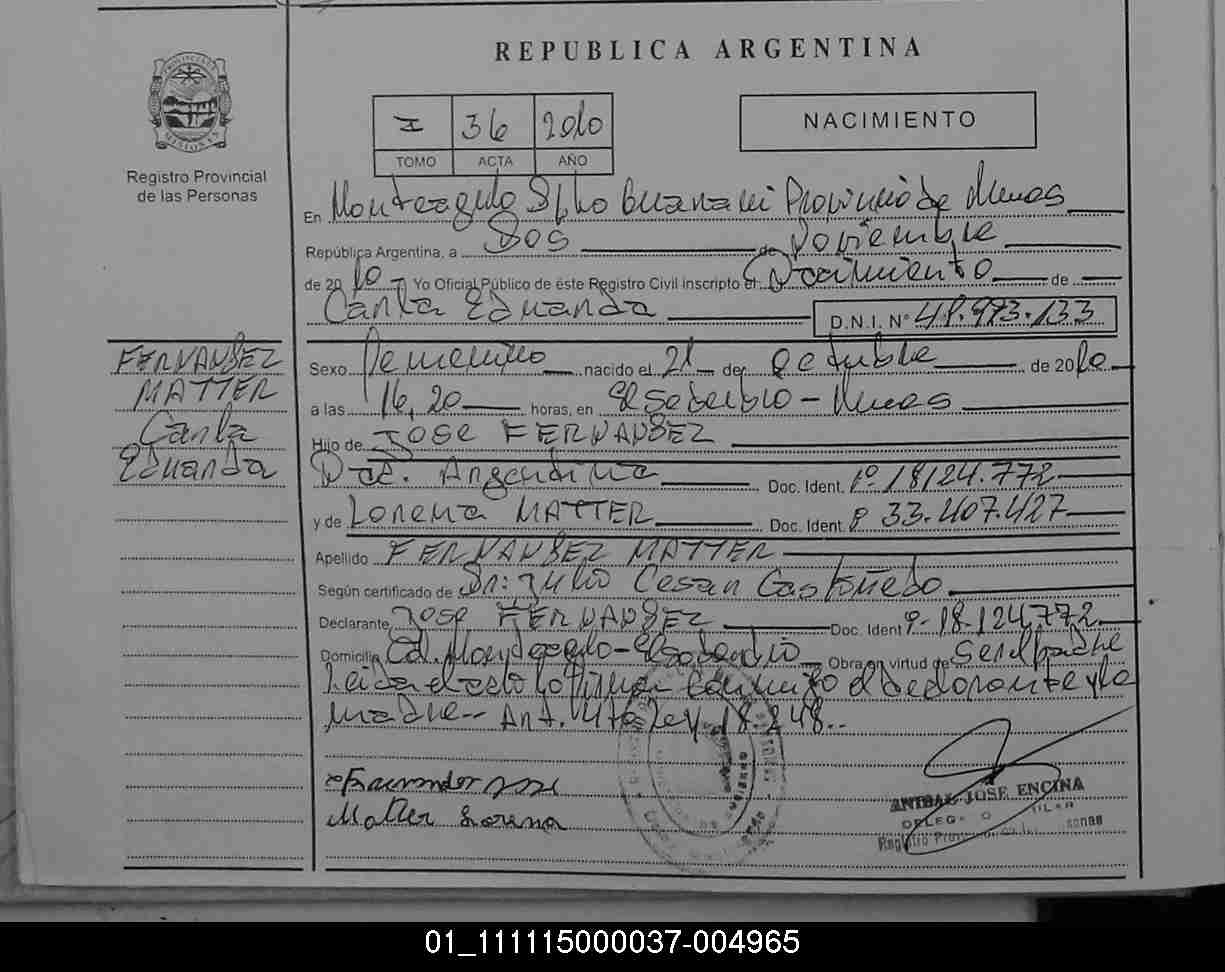 REPUBLICA ARGENTINA
PROVINCIA DE MISIONES
Registro Provincial
de las Personas
I 36 2010
TOMO ACTA AÑO
NACIMIENTO
En Monteagudo Dpto Guarani Provincia de Mnes
República Argentina, a Dos de Noviembre
de 2010 Yo Oficial Público de éste Registro Civil inscripto el Nacimiento de
Carla Eduarda D.N.I. N°
FERNANDEZ
MATTER
Carla
Eduarda
Sexo Femenino nacido el 21 de octubre de 2010
a las 16,20 horas, en El Soberbio - Mnes
Hijo de JOSE FERNANDEZ
Nac. Argentina Doc. Ident. 18.124.772
y de Lorena MATTER Doc. Ident. 33.407.427
Apellido FERNANDEZ MATTER
Según certificado de Dr: Julio Cesar Castañedo
Declarante JOSE FERNANDEZ Doc. Ident 18.124.772
Domicilio Monteagudo - El Soberbio Obra en virtud de Ser el padre
Leida el acta la firman conmigo el declarante y la
madre-- Art. 4to Ley 18.248..
Fernandez Jose
Matter Lorena
ANIBAL JOSE ENCINA
Registro
01_111115000037-004965